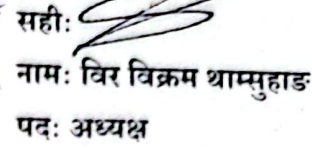 सही:
नाम: विर विक्रम थाम्सुहाङ
पद: अध्यक्ष